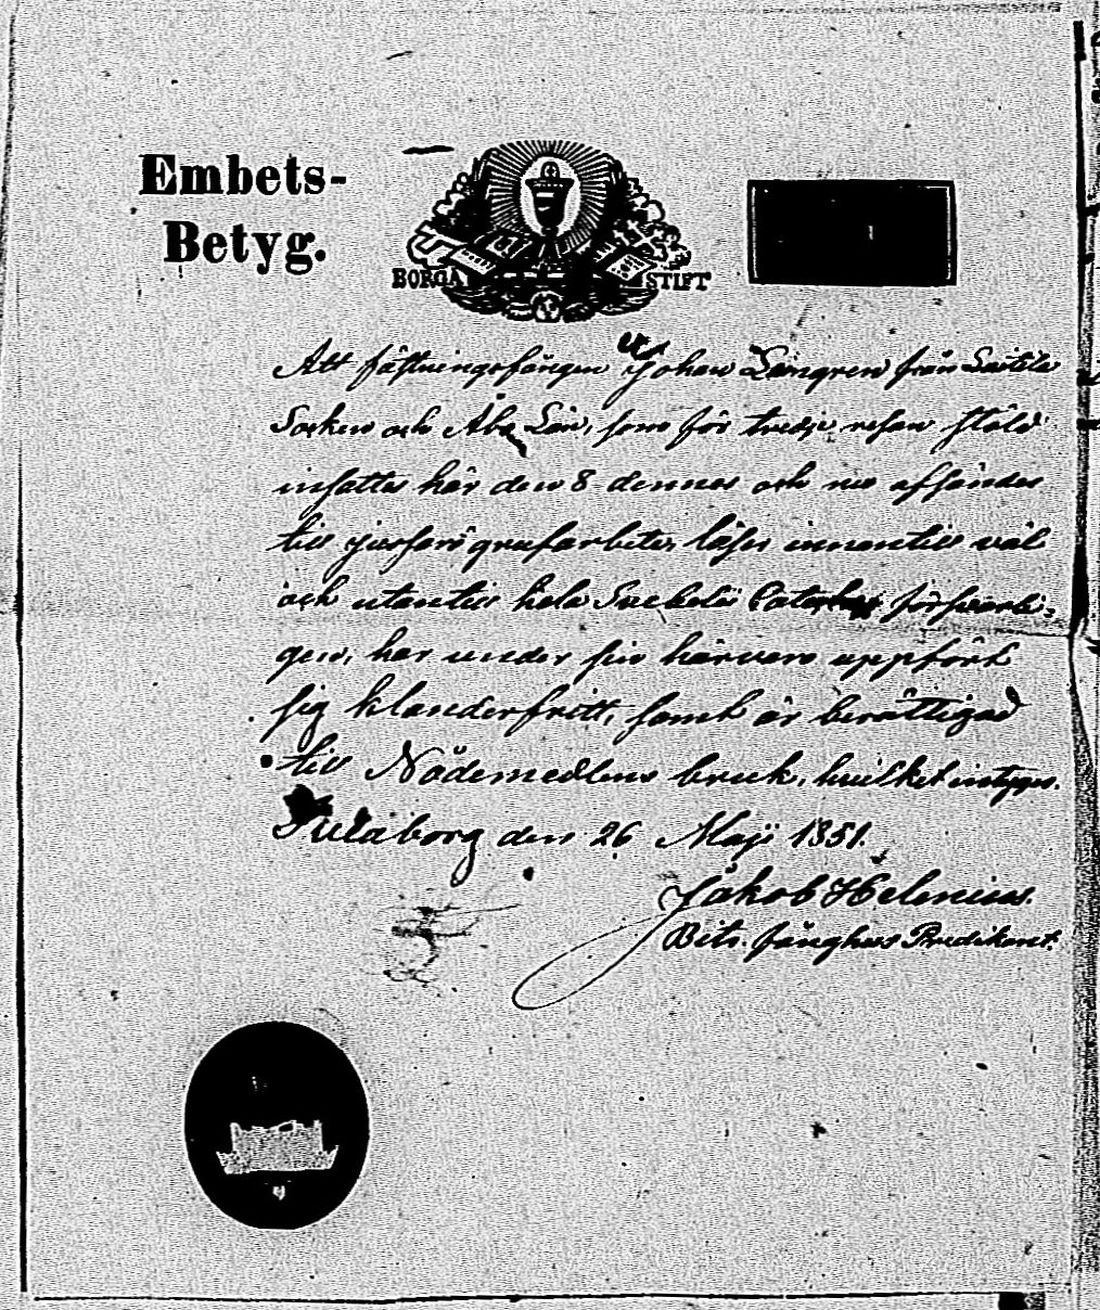 Embets-
Betyg.
BORGÅ STIFT
Att fästningsfången Johan Längren från Laitila
Socken och Åbo Län, som för tredje resan stöld
insattes här den 8 dennes och nu afsändes
till grufarbete, läser innantill väl
och utantill hela Svebelii Cateches försvarli-
gen, har under sin härvaro uppfört
sig klanderfritt, samt är berättigad
till Nådemedlens bruk, hvilket intygas.
Sveaborg den 26 Maji 1851.
Jakob Helenius.
Bitr. fånghus Predikant.